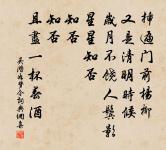 插遍門前楊柳
又是清明時候
歲月不饒人鬢影
星星知否
知否
知否
且盡一杯春酒
吳潛如夢令詞典網書